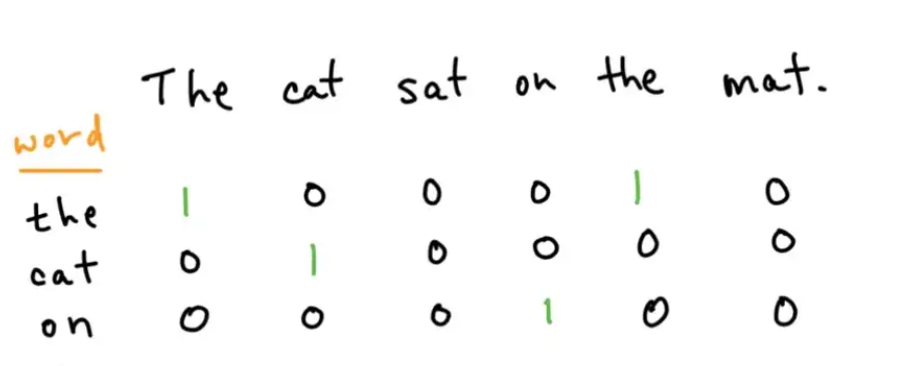 The cat sat on the mat.
word
the 1 0 0 0 1 0
cat 0 1 0 0 0 0
on 0 0 0 1 0 0